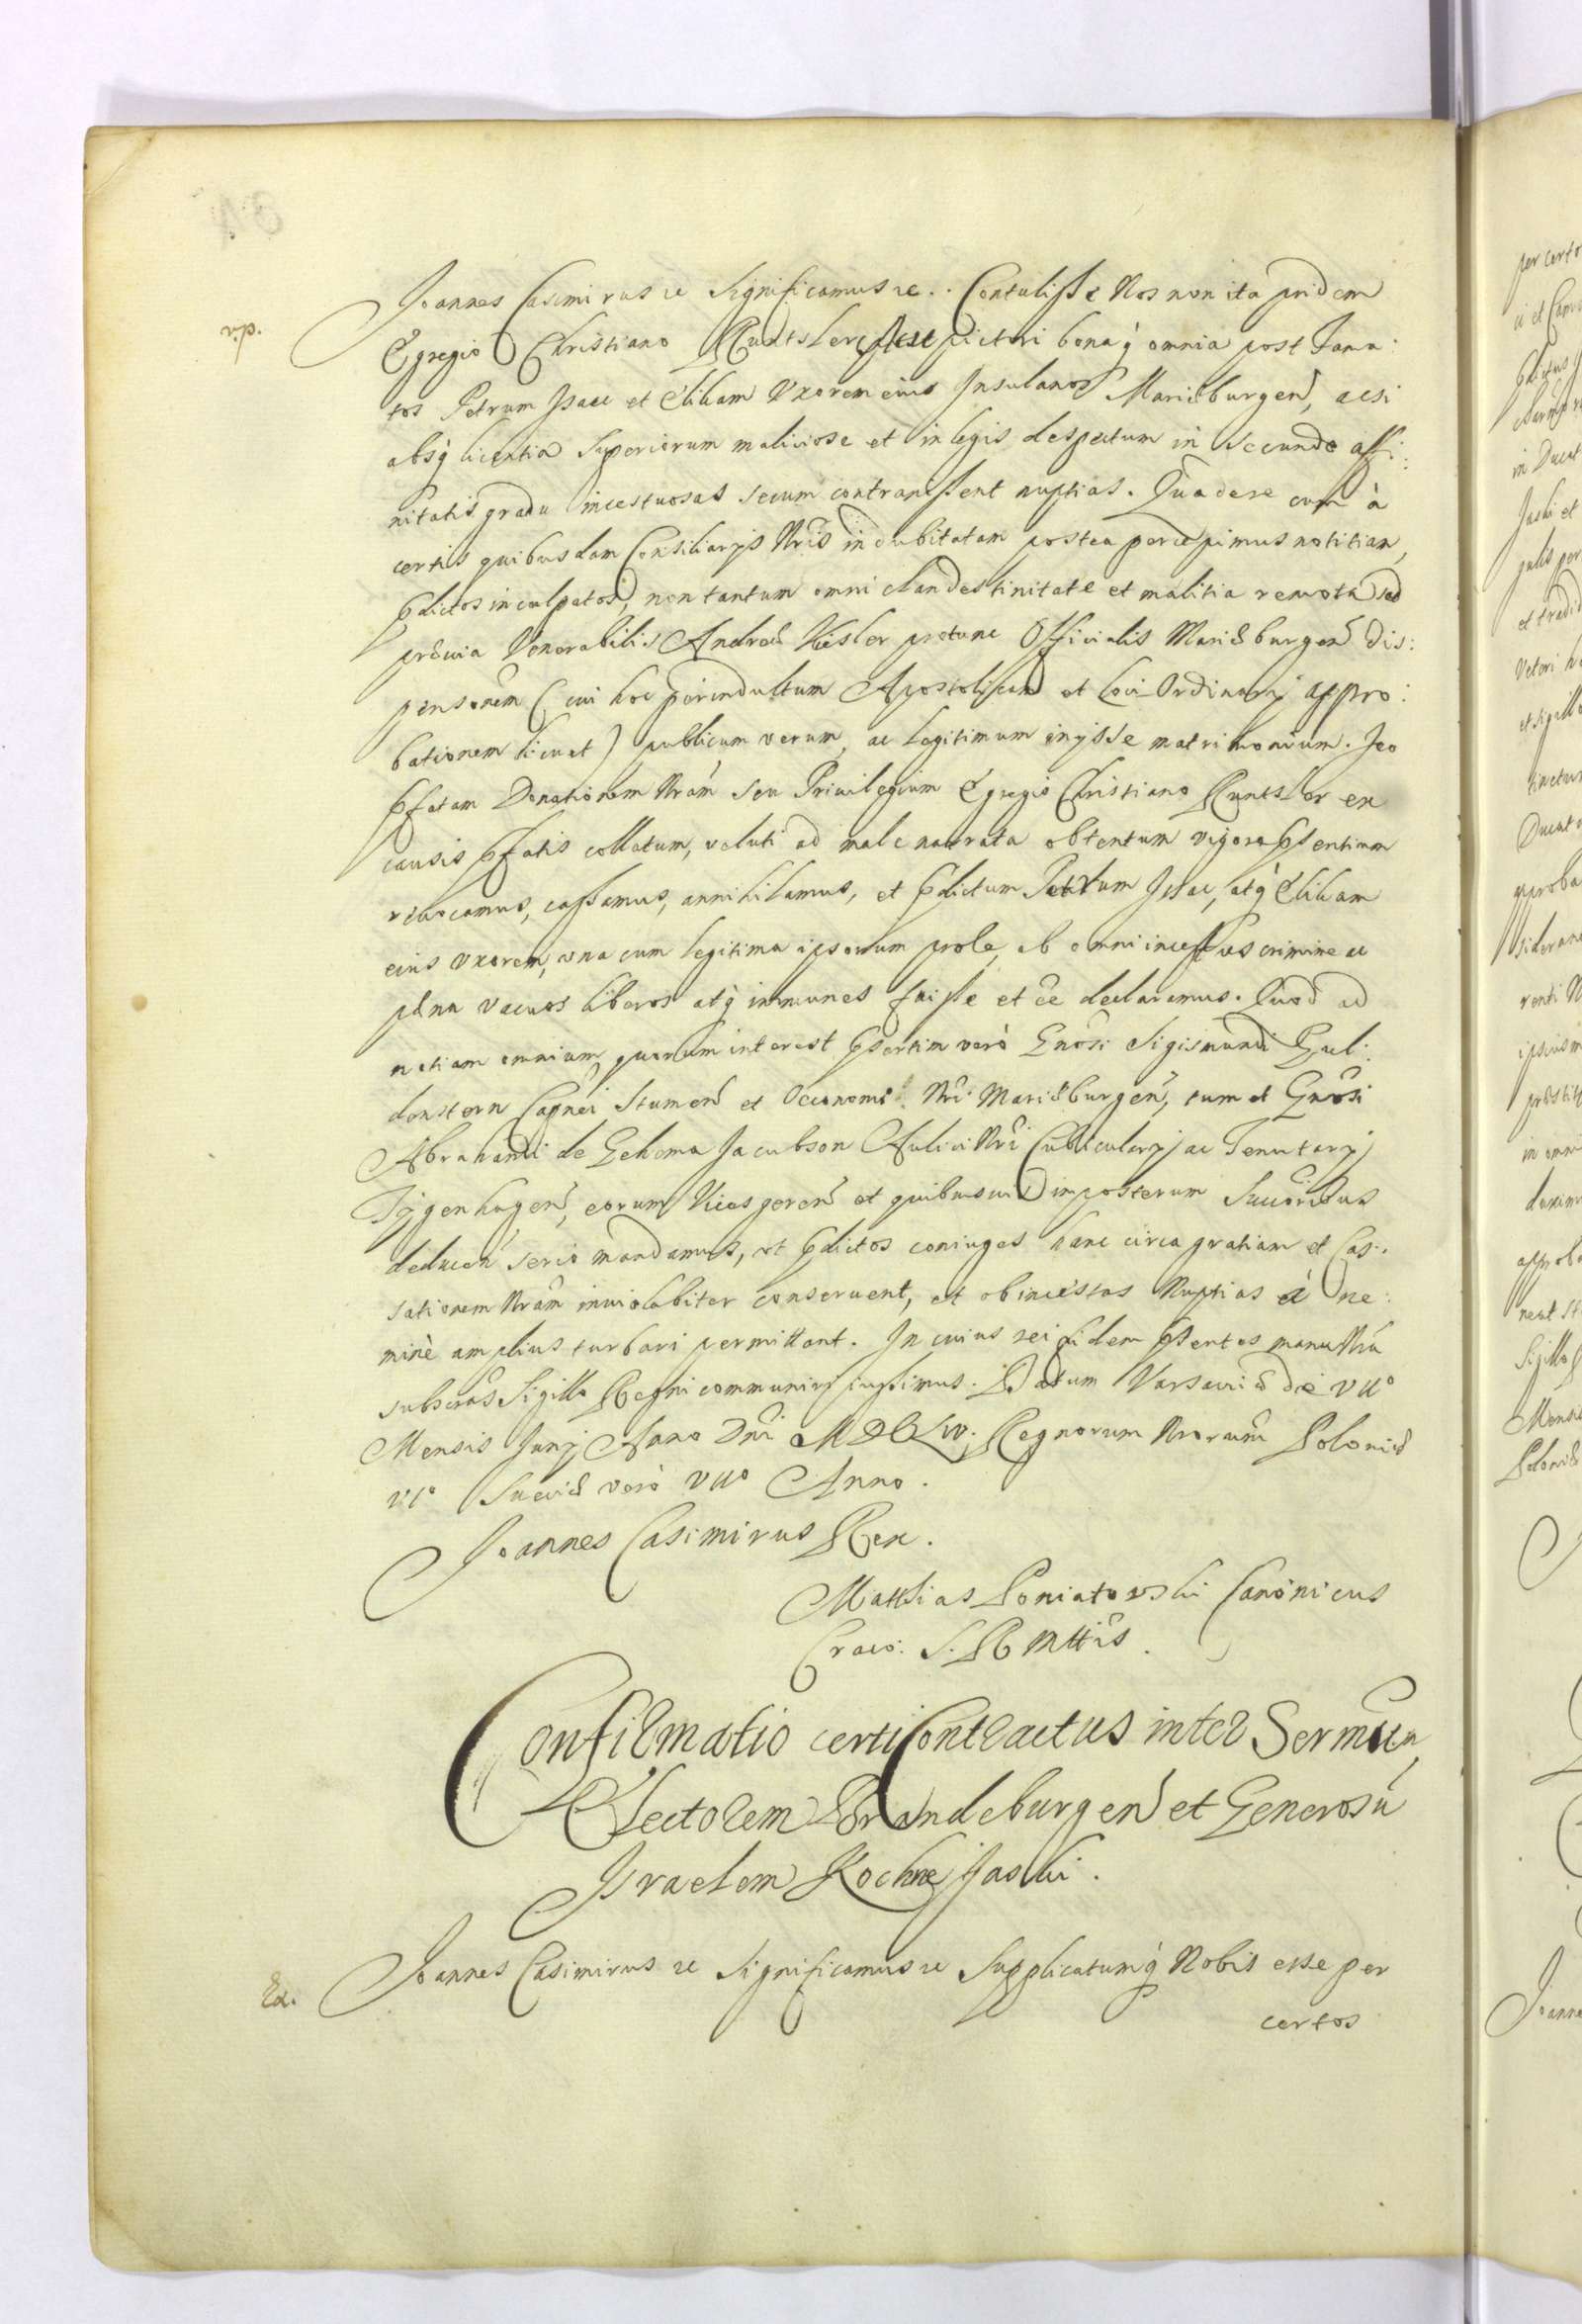 Joannes Casimirus etc Significamus etc. Contulisse Nos non ita pridem
vip.
Egregio Christiano Runtsler pictori bonaq́ omnia post dana:
tos Petrum Isaac et Eliham Vxorem eius Insulanos Mariæburgen, acsi
absq́ licentia Superiorum maliciose et in legis despectum in secundo affi:
nitatis gradu incestuosas secum contraxissent nuptias. Qua de re cum à
certis quibusdam Consiliarijs Nris indubitatam postea percepimus notitiam,
pdictos inculpatos, non tantum omni clandestinitate et malitia remota sed
præuia Venerabilis Andreæ Kiesler protunc Officialis Mariæburgen dis:
pensonem (cui hoc per indultum Apostolicum et loci Ordinarij appro:
bationem licuit) publicum verum, ac legitimum inijsse matrimonium. Ieo
pfatam Donationem Nram seu Priuilegium Egregio Christiano Runtsler ex
causis pfatis collatum, veluti ad male narrata obtentum vigore psentium
reuocamus, cassamus, annihilamus, et pdictum Petrum Isaac, atq́ Eliham
eius vxorem, vna cum legitima ipsorum prole, ab omni incestus crimine ac
pæna vacuos liberos atq́ immunes fuisse et ee declaramus. Quod ad
notiam omnium quorum interest psertim verò Gnosi Sigismundi Gul:
denstern Capnei Stumen et Oeconomi Nri Mariæburgen, tum et Gnosi
Abrahami de Gehema Jacubson Aulici Nri Cubicularij ac Tenutarij
Tygenhagen, eorum Vices geren et quibusuis imposterum Succoribus
deducen serio mandamus, vt pdictos coniuges hanc circa gratiam et Cas:
sationem Nram inuiolabiter conseruent, et ob incestas Nuptias à ne:
minè amplius turbari permittant. In cuius rei fidem psentes manu Nra
subscras Sigillo Regni communiri iussimus. Datum Varsauiæ die VIIº
Mensis Junij Anno Dni MDCLIV. Regnorum Nrorum Poloniæ
VIº Sueciæ verò VIIº Anno.
Joannes Casimirus Rex.
Matthias Poniatowski Canonicus
Crac: S. R Mttis.
Confirmatio certi Contractus inter Sermum,
Electorem Brandeburgen et Generosu
Israelem Kochne Jaski.
Ex.
Joannes Casimirus etc Significamus etc Supplicatumq́ Nobis esse per
certos